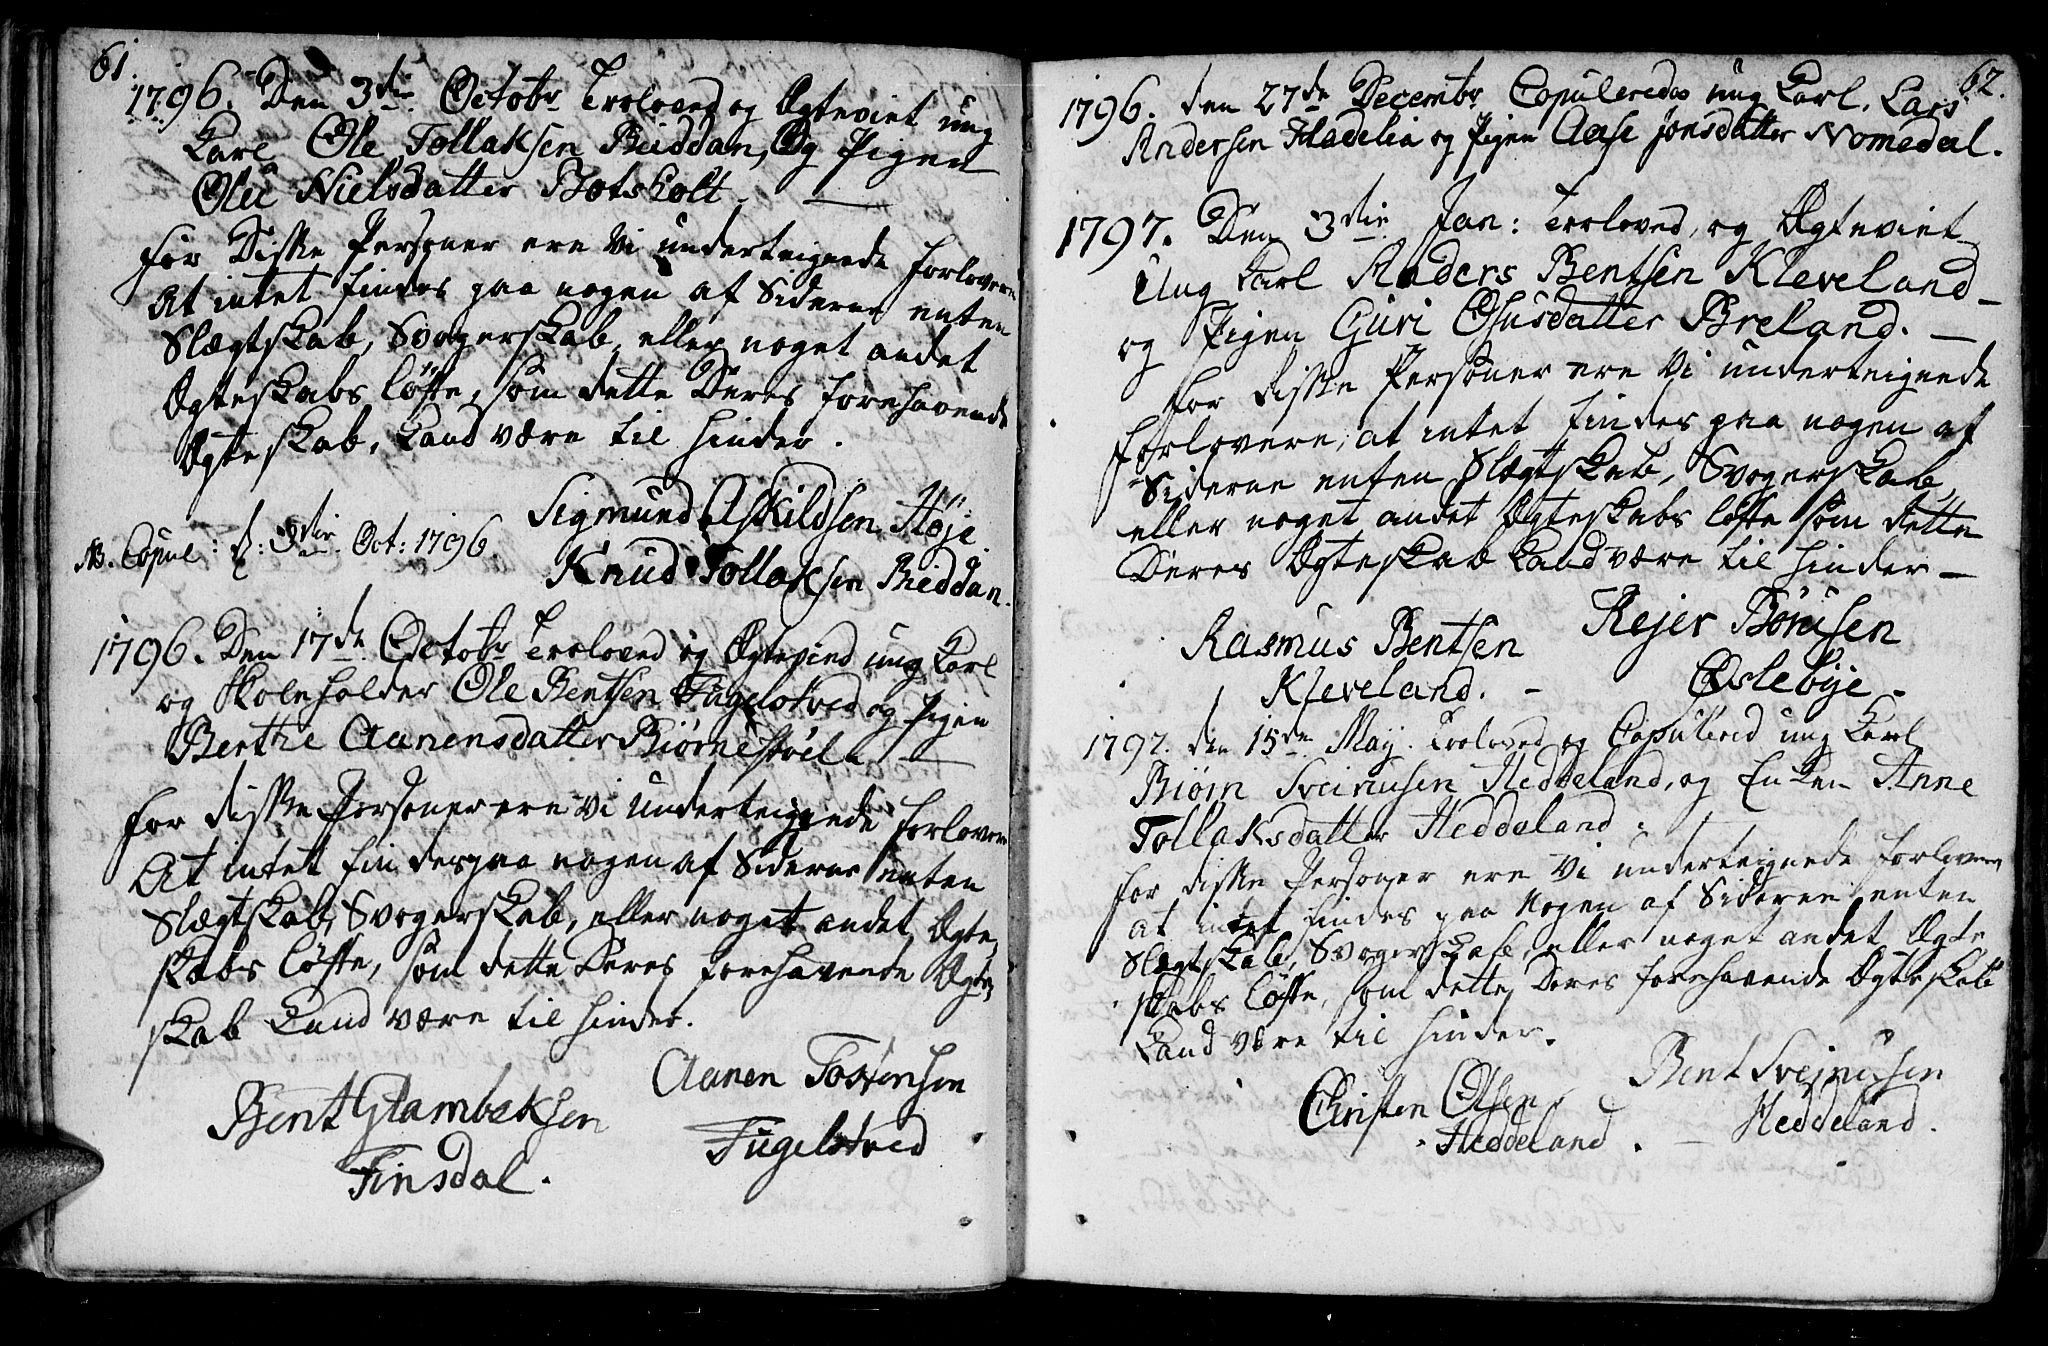 61.
1796. Den 3die Octobr Troloved og Ægteviet ung
Karl Ole Tollaksen Reiddan, Og Pigen
Olea Nielsdatter Botsholt. —
For Disse Personer ere Vi underteignede Forlovere
At intet findes paa nogen af Siderne enten
Slægtskab, Svogerskab, eller noget andet
Ægteskabs Løfte, som dette Deres forehavende
Ægteskab, Kand være til hinder.
Sigmund Askildsen Høje.
NB. Copul: d: 3die Oct: 1796.
Knud Tollaksen Reiddan.
1796. Den 17de Octobr Troloved og Ægtevied ung Karl
og Skoleholder Ole Bentsen Fugelstved og Pigen
Berthe Aanensdatter Biørnestøel. —
For disse Personer ere Vi underteignede Forlovere
At intet findes paa nogen af Siderne enten
Slægtskab, Svogerskab, eller noget andet Ægte-
skabs Løfte, som dette Deres forehavende Ægte-
skab Kand være til hinder.
Bent Glambeksen
Finsdal.
Aanen Tostensen
Fugelstved
62.
1796. den 27de Decembr Copuleredes ung Karl, Lars
Andersen Fladelia og Pigen Aase Jonsdatter Nomedal.
1797. Den 3die Jan: Troloved, og Ægteviet
Ung Karl Anders Bentsen Kleveland —
og Pigen Guri Osusdatter Breland. —
For disse Personer ere Vi underteignede
Forlovere, at intet findes paa nogen af
Siderne enten Slægtskab, Svogerskab,
eller noget andet Ægteskabs Løfte som dette
Deres Ægteskab Kand være til hinder —
Rasmus Bentsen
Kleveland. -
Rejer Børusen
Øslebye.
1797. den 15de May. Troloved og Copulered ung Karl
Biørn Sveinusen Heddeland, og Enken Anne
Tollaksdatter Heddeland.
For disse Personer ere Vi underteignede Forlovere
at intet findes paa Nogen af Siderne enten
Slægtskab, Svogerskab, eller noget andet Ægte
skabs Løfte, som dette Deres forehavende Ægteskab
Kand være til hinder.
Christen Olsen
Heddeland. —
Bent Svejnusen
Heddeland.